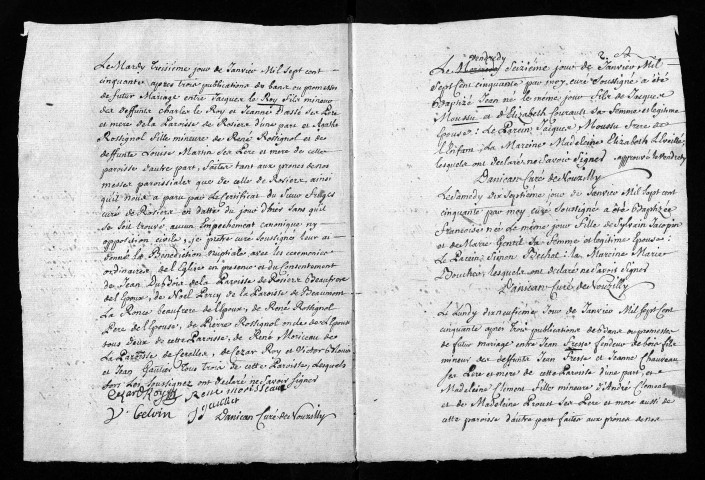 Le Mardy treisième jour de Janvier Mil Sept cent
cinquante apres trois publications de bans ou promesses
de futur Mariage entre Jacques le Roy fils mineur
des deffunts charles le Roy et Jeanne Dassé ses Pere
et mere de la Paroisse de Rosiers d'une part et Agathe
Rossignol fille mineure de René Rossignol et de
deffunte Louise Martin ses Pere et mere de cette
paroisse d'autre part, faites tant aux prones de nos
messes paroissiales que de celles de Rosiers, ainsi
qu'il nous a paru par le Certificat du Sieur
curé de Rosiers en datte du jour d'hier sans qu'il
se soit trouvé aucun Empeschement canonique ny
opposition civile, je prêtre curé soussigné leur ai
donné la Bénédiction nuptiale avec les ceremonies
ordinaires de l'Eglise en presence et du Consentement
de Jean Dubois de la Paroisse de Rosiers Beaufrere
de l'Epoux, de Noël Percy de la Paroisse de Beaumont
La Ronce beaufrere de l'Epoux, de René Rossignol
Pere de l'Epouse, de Pierre Rossignol oncle de l'Epouse
tous deux de cette Paroisse, de René Moriceau de
La Paroisse de Cerelles, de Cezar Roy et Victor
et Jean Gautier tous trois de cette Paroisse, lesquels
fors les soussignez ont déclaré ne savoir signer
Cezard Roy René morisseau
V. Gelvin
Danican Curé de Nouzilly
vendredy
Le seizième jour de Janvier Mil
Sept cent cinquante par moy, curé soussigné a été
Baptizé Jean né le même jour fils de Jacques
Moussu et d'Elizabeth Courault sa femme et legitime
Epouse: Le Parein Jacques Moussu frere de
l'Enfant; la Mareine Madeleine Elizabeth
lesquels ont déclaré ne savoir signer approuvé le Vendredy
Danican Curé de Nouzilly
Le Samedy dix Septième jour de Janvier Mil Sept cent
cinquante par moy curé soussigné a été Baptizée
Francoise née le même jour fille de Sylvain Jacopin
et de Marie Gentil sa femme et legitime Epouse:
Le Parein; Simon Bechet: la Mareine Marie
Boucher; lesquels ont déclaré ne savoir signer
Danican Curé de Nouzilly
Le Lundy dixneufième jour de Janvier Mil Sept cent
cinquante apres trois publications de bans ou promesses
de futur mariage entre Jean Fresse fendeur de bois fils
mineur des deffunts Jean Fresse et Jeanne Chauveau
ses Pere et mere de cette Paroisse d'une part, et
Madeleine Clement fille mineure d'André Clement
et de Madeleine Proust ses Pere et mere aussi de
cette paroisse d'autre part faites aux prones de nos